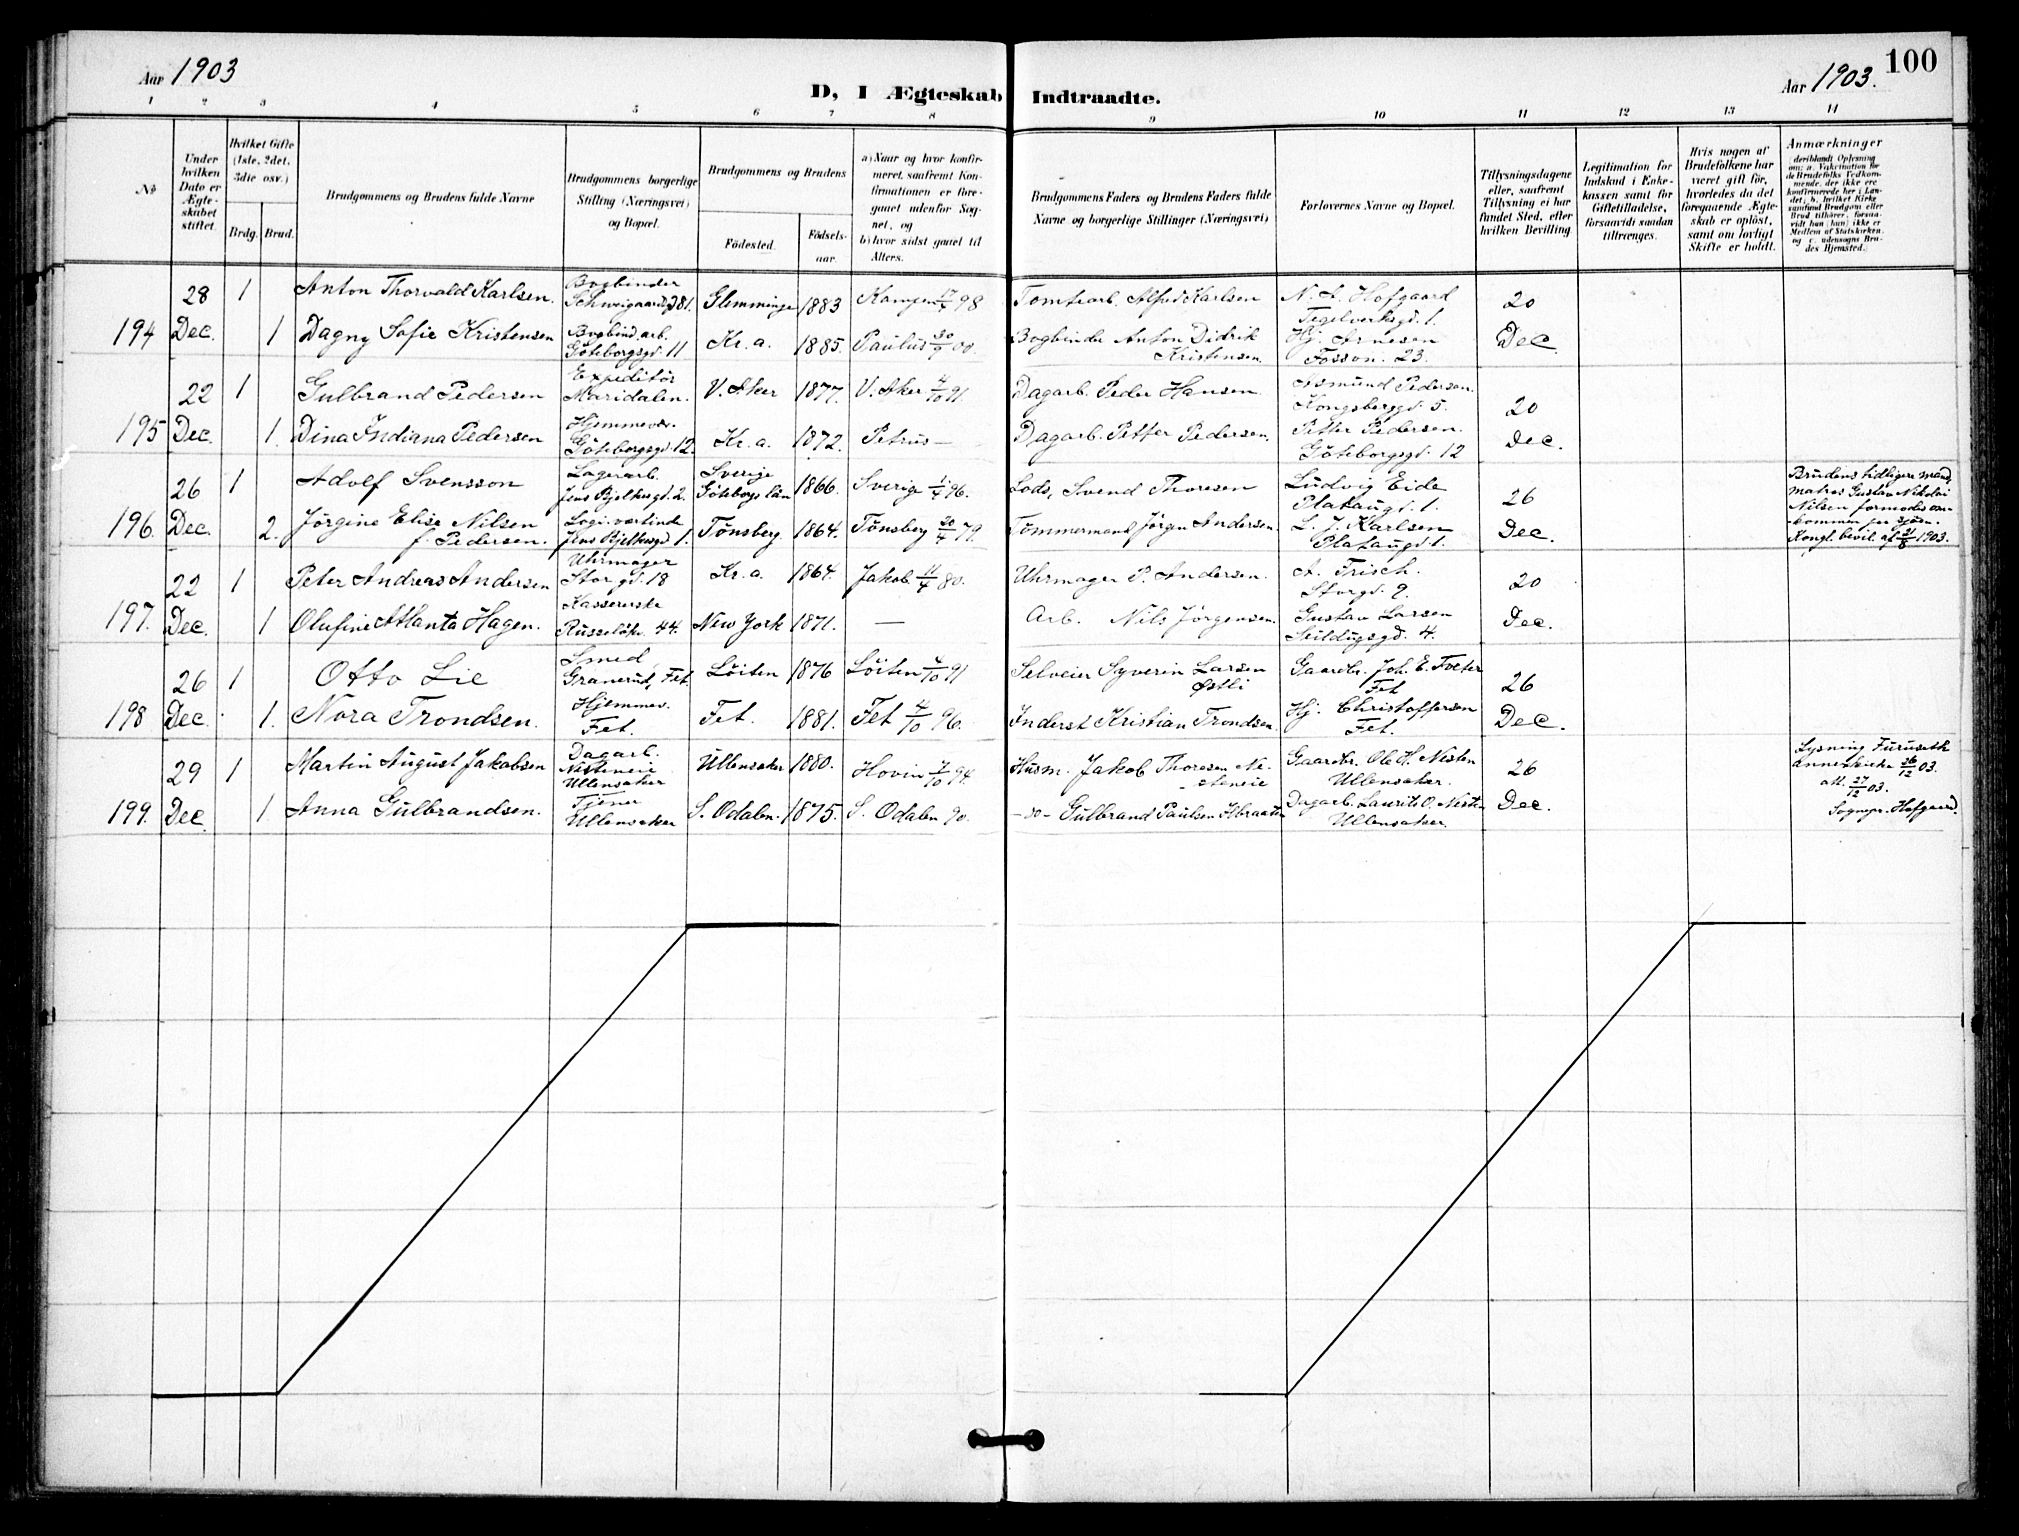 Aar 1903
D, I Ægteskab Indtraadte.
Aar 1903.
100
1 2 3 4 5 6 7 8 9 10 11 12 13 14
No
Under hvilken Dato er Ægteskabet stiftet.
Hvilket Gifte (1ste, 2det, 3die osv.)
Brdg. Brud.
Brudgommens og Brudens fulde Navne
Brudgommens borgerlige Stilling (Næringsvei) og Bopæl.
Brudgommens og Brudens
Födested. Födselsaar.
a) Naar og hvor konfirmeret, saafremt Konfirmationen er foregaaet udenfor Sognet, og
b) hvor sidst gaaet til Alters.
Brudgommens Faders og Brudens Faders fulde Navne og borgerlige Stillinger (Næringsvei)
Forlovernes Navne og Bopæl.
Tillysningsdagene eller, saafremt Tillysning ei har fundet Sted, efter hvilken Bevilling
Legitimation for Indskud i Enkekassen samt for Giftetilladelse, forsaavidt saadan tiltrænges.
Hvis nogen af Brudefolkene har været gift før, hvorledes da det foregaaende Ægteskab er oplöst, samt om lovligt Skifte er holdt.
Anmærkninger
(deriblandt Oplysning om: a. Vakcination for de Brudefolks Vedkommende, der ikke ere konfirmerede her i Landet; b. hvilket Kirkesamfund Brudgom eller Brud tilhører, forsaavidt han (hun) ikke er Medlem af Statskirken, og c. udensogns Brudes Hjemsted.
28 1 Anton Thorvald Karlsen. Bogbinder Schweigaardsgd 81. Glemminge 1883 Kampen 17/4 98 Tomtearb. Alfred Karlsen N. L. Hofgaard Tegelverksgd. 1. 20
194 Dec. 1 Dagny Sofie Kristensen Bogbind.arb. Göteborgsgd. 11 Kr.a. 1885. Paulus 30/9 00. Bogbinder Anton Didrik Kristensen. Hj. Arnesen Fosson. 23. Dec.
22 1 Gulbrand Pedersen Expeditör Maridalen. V. Aker 1877. V. Aker 4/10 91. Dagarb. Peder Hansen. Asmund Pedersen. Kongsberggd. 5. 20
195 Dec. 1. Dina Indiana Pedersen Hjemmevær. Göteborgsgd. 12. Kr.a. 1872. Petrus — Dagarb. Petter Pedersen. Petter Pedersen. Göteborgsgd. 12 Dec.
26 1 Adolf Svensson Lagerarb. Jens Bjelkesgd. 2. Sverige Göteborgs län 1866. Sverige 1/4 96. Lods, Svend Thoresen Ludvig Eide Plataugd. 1. 26
Brudens tidligere mand, matros Gustav Nikolai Nilsen formodes omkommen paa sjøen. Kongl. bevil. af 21/8 1903.
196. Dec. 2. Jørgine Elise Nilsen f. Pedersen. Logi-værtinde Jens Bjelkesgd. 1. Tønsberg 1864. Tønsberg 20/4 79. Tømmermand Jörgen Andersen. L. J. Karlsen Plataugd. 1. Dec.
22 1 Peter Andreas Andersen Uhrmager Storgd. 18 Kr.a. 1864. Jakob 11/4 80. Uhrmager P. Andersen. A. Frisch. Storgd. 9. 20
197. Dec. 1 Olufine Atlanta Hagen. Kassererske Russeløkv. 44. New York 1871. — Arb. Nils Jörgensen. Gustav Larsen Seildugsgd. 4. Dec.
26 1 Otto Lie Smed, Granerud, Fet. Löiten 1876 Löiten 4/10 91 Selveier Syverin Larsen Østli Gaardbr. Joh. E. Tveter Fet 26
198 Dec. 1. Nora Trondsen. Hjemmev. Fet. Fet. 1881. Fet 4/10 96. Inderst Kristian Trondsen. Hj. Christoffersen Fet. Dec.
29 1 Martin August Jakobsen Dagarb. Nesteneie Ullensaker Ullensaker 1880. Hovin 7/10 94. Husm. Jakob Thoresen Nesteneie Gaardbr. Ole H. Nesten Ullensaker. 26
Lysning Furuseth Anneskirke 26/12 03. att. 27/12 03. Sognepr. Hofgaard.
199. Dec. 1 Anna Gulbrandsen. Tjener Ullensaker S. Odalen. 1875. S. Odalen 90. -do- Gulbrand Paulsen Dagarb. Laurits O. Nesten Ullensaker. Dec.